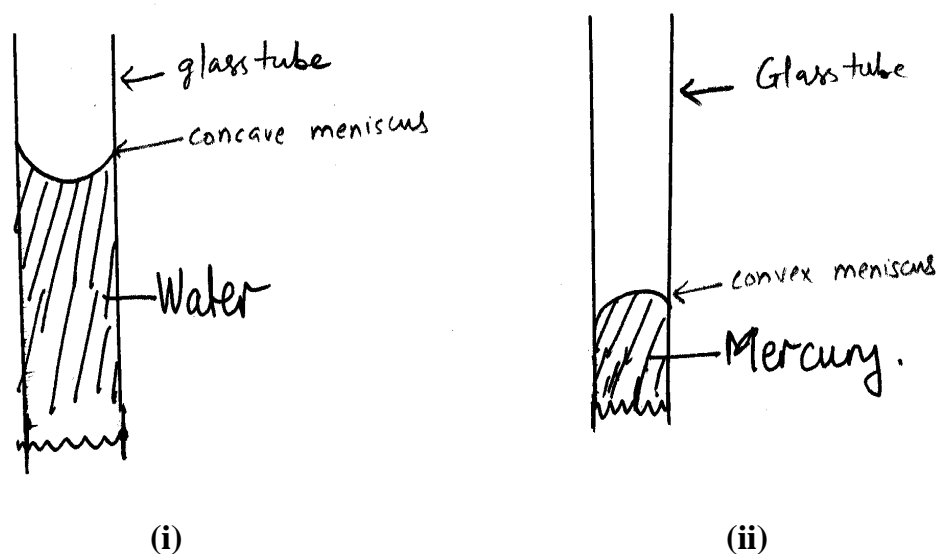 glass tube
concave meniscus
Water
(i)
Glass tube
convex meniscus
Mercury.
(ii)